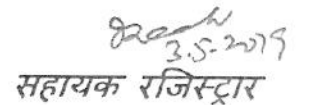 3.5.2019
सहायक रजिस्ट्रार